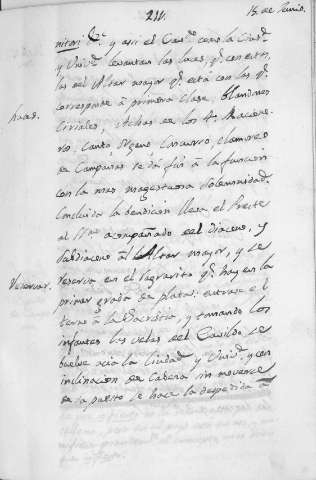 211.
15 de Junio.
nitori &c. y asi el Cav.do como la Ciud.d
y Univ.d levantan las luces, q.e con estas,
las del Altar mayor q.e está con las q.e
corresponde á primera clase, blandones
Ciriales, Achas de los 4. Racione-
ro, Canto, Organo, concurso, clamores
de Campanas se dá fin á la funcion
con la mas magestuosa solemnidad.
hacas.
Concluida la bendicion lleva el Preste
al N.mo acompañado del Diacono, y
Subdiacono al Altar mayor, y se
Reservar.
reserva en el sagrario q.e hay en la
primer grada de plata: entrase el
terno á la Sacristia, y tomando los
infantes las velas del Cavildo se
buelve acia la Ciudad y Univ.d y con
inclinacion de Cabeza sin moverse
de su puesto se hace la despedida á